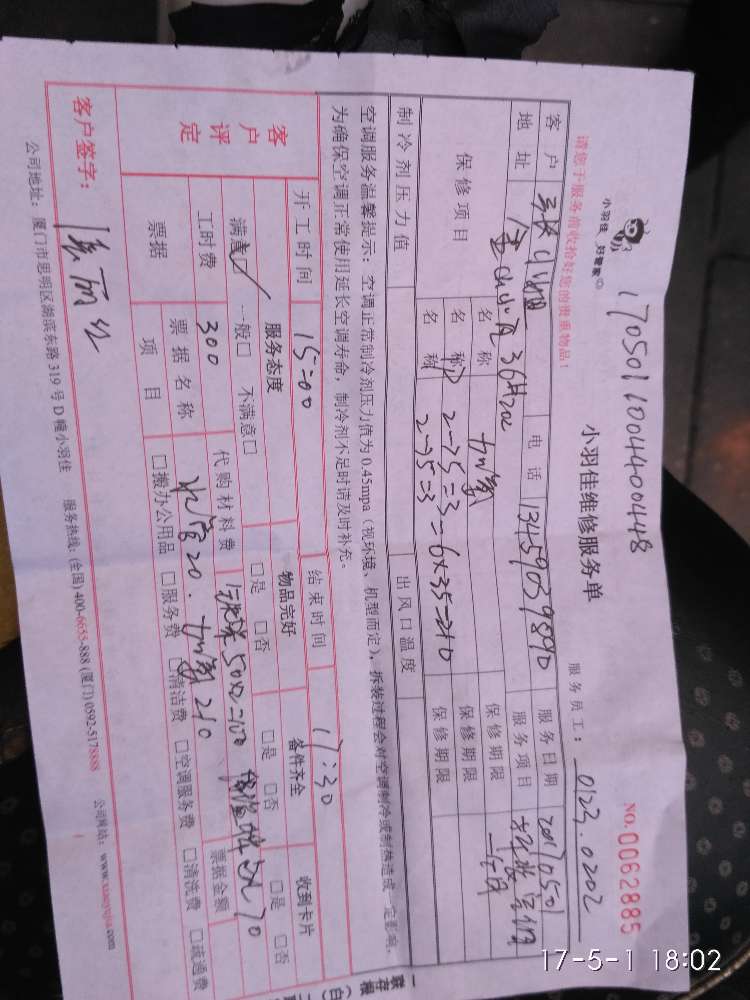 1705011004400448
小羽佳 好管家
小羽佳维修服务单
NO.0062885
请您于服务前收拾好您的贵重物品!
服务员工: 0123.0202
客户 电话 13459039890 服务日期 20170501
地址 服务项目
保修项目 名称 加氟 保修期限 一个月
名称 2-75=3 = 6×35=210 保修期限
名称 2-75=3 保修期限
制冷剂压力值 出风口温度
空调服务温馨提示:空调正常制冷剂压力值为0.45mpa(视环境、机型而定),拆装过程会对空调制冷或制热造成一定影响,
为确保空调正常使用延长空调寿命,制冷剂不足时请及时补充。
开工时间 15:00 结束时间 17:30
客户评定 服务态度 物品完好 备件齐全 收到卡片
满意☑ 一般□ 不满意□ □是 □否 □是 □否 □是 □否
工时费 300 代购材料费 50×2=100 70
水管20. 加氟210
票据 票据名称 票据金额
项目 □搬办公用品 □服务费 □清洁费 □空调服务费 □清洗费 □疏通费
客户签字:
公司地址:厦门市思明区湖滨东路319号D幢小羽佳 服务热线:(全国)400-6655-888 (厦门)0592-5178888 公司网站:www.xiaoyujia.com
17-5-1 18:02